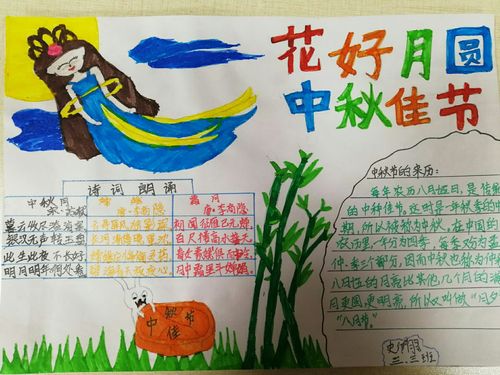 花好月圆
中秋佳节
诗词朗诵
中秋月
宋·苏轼
暮云收尽溢清寒
银汉无声转玉盘
此生此夜不长好
明月明年何处看
嫦娥
唐·李商隐
霜月
唐·李商隐
初闻征雁已无蝉
百尺楼高水接天
月中霜里斗婵娟
中秋
佳节
中秋节的来历:
每年农历八月十五日,是传统
的中秋佳节。这时是一年秋季的中
期,所以被称为中秋。在中国的
农历里,一年分为四季,每季又分为孟
仲、季三个部分,因而中秋也称为仲
八月十五的月亮比其他几个月的满
月更圆,更明亮,所以又叫做“月夕
“八月节”。
三、三班